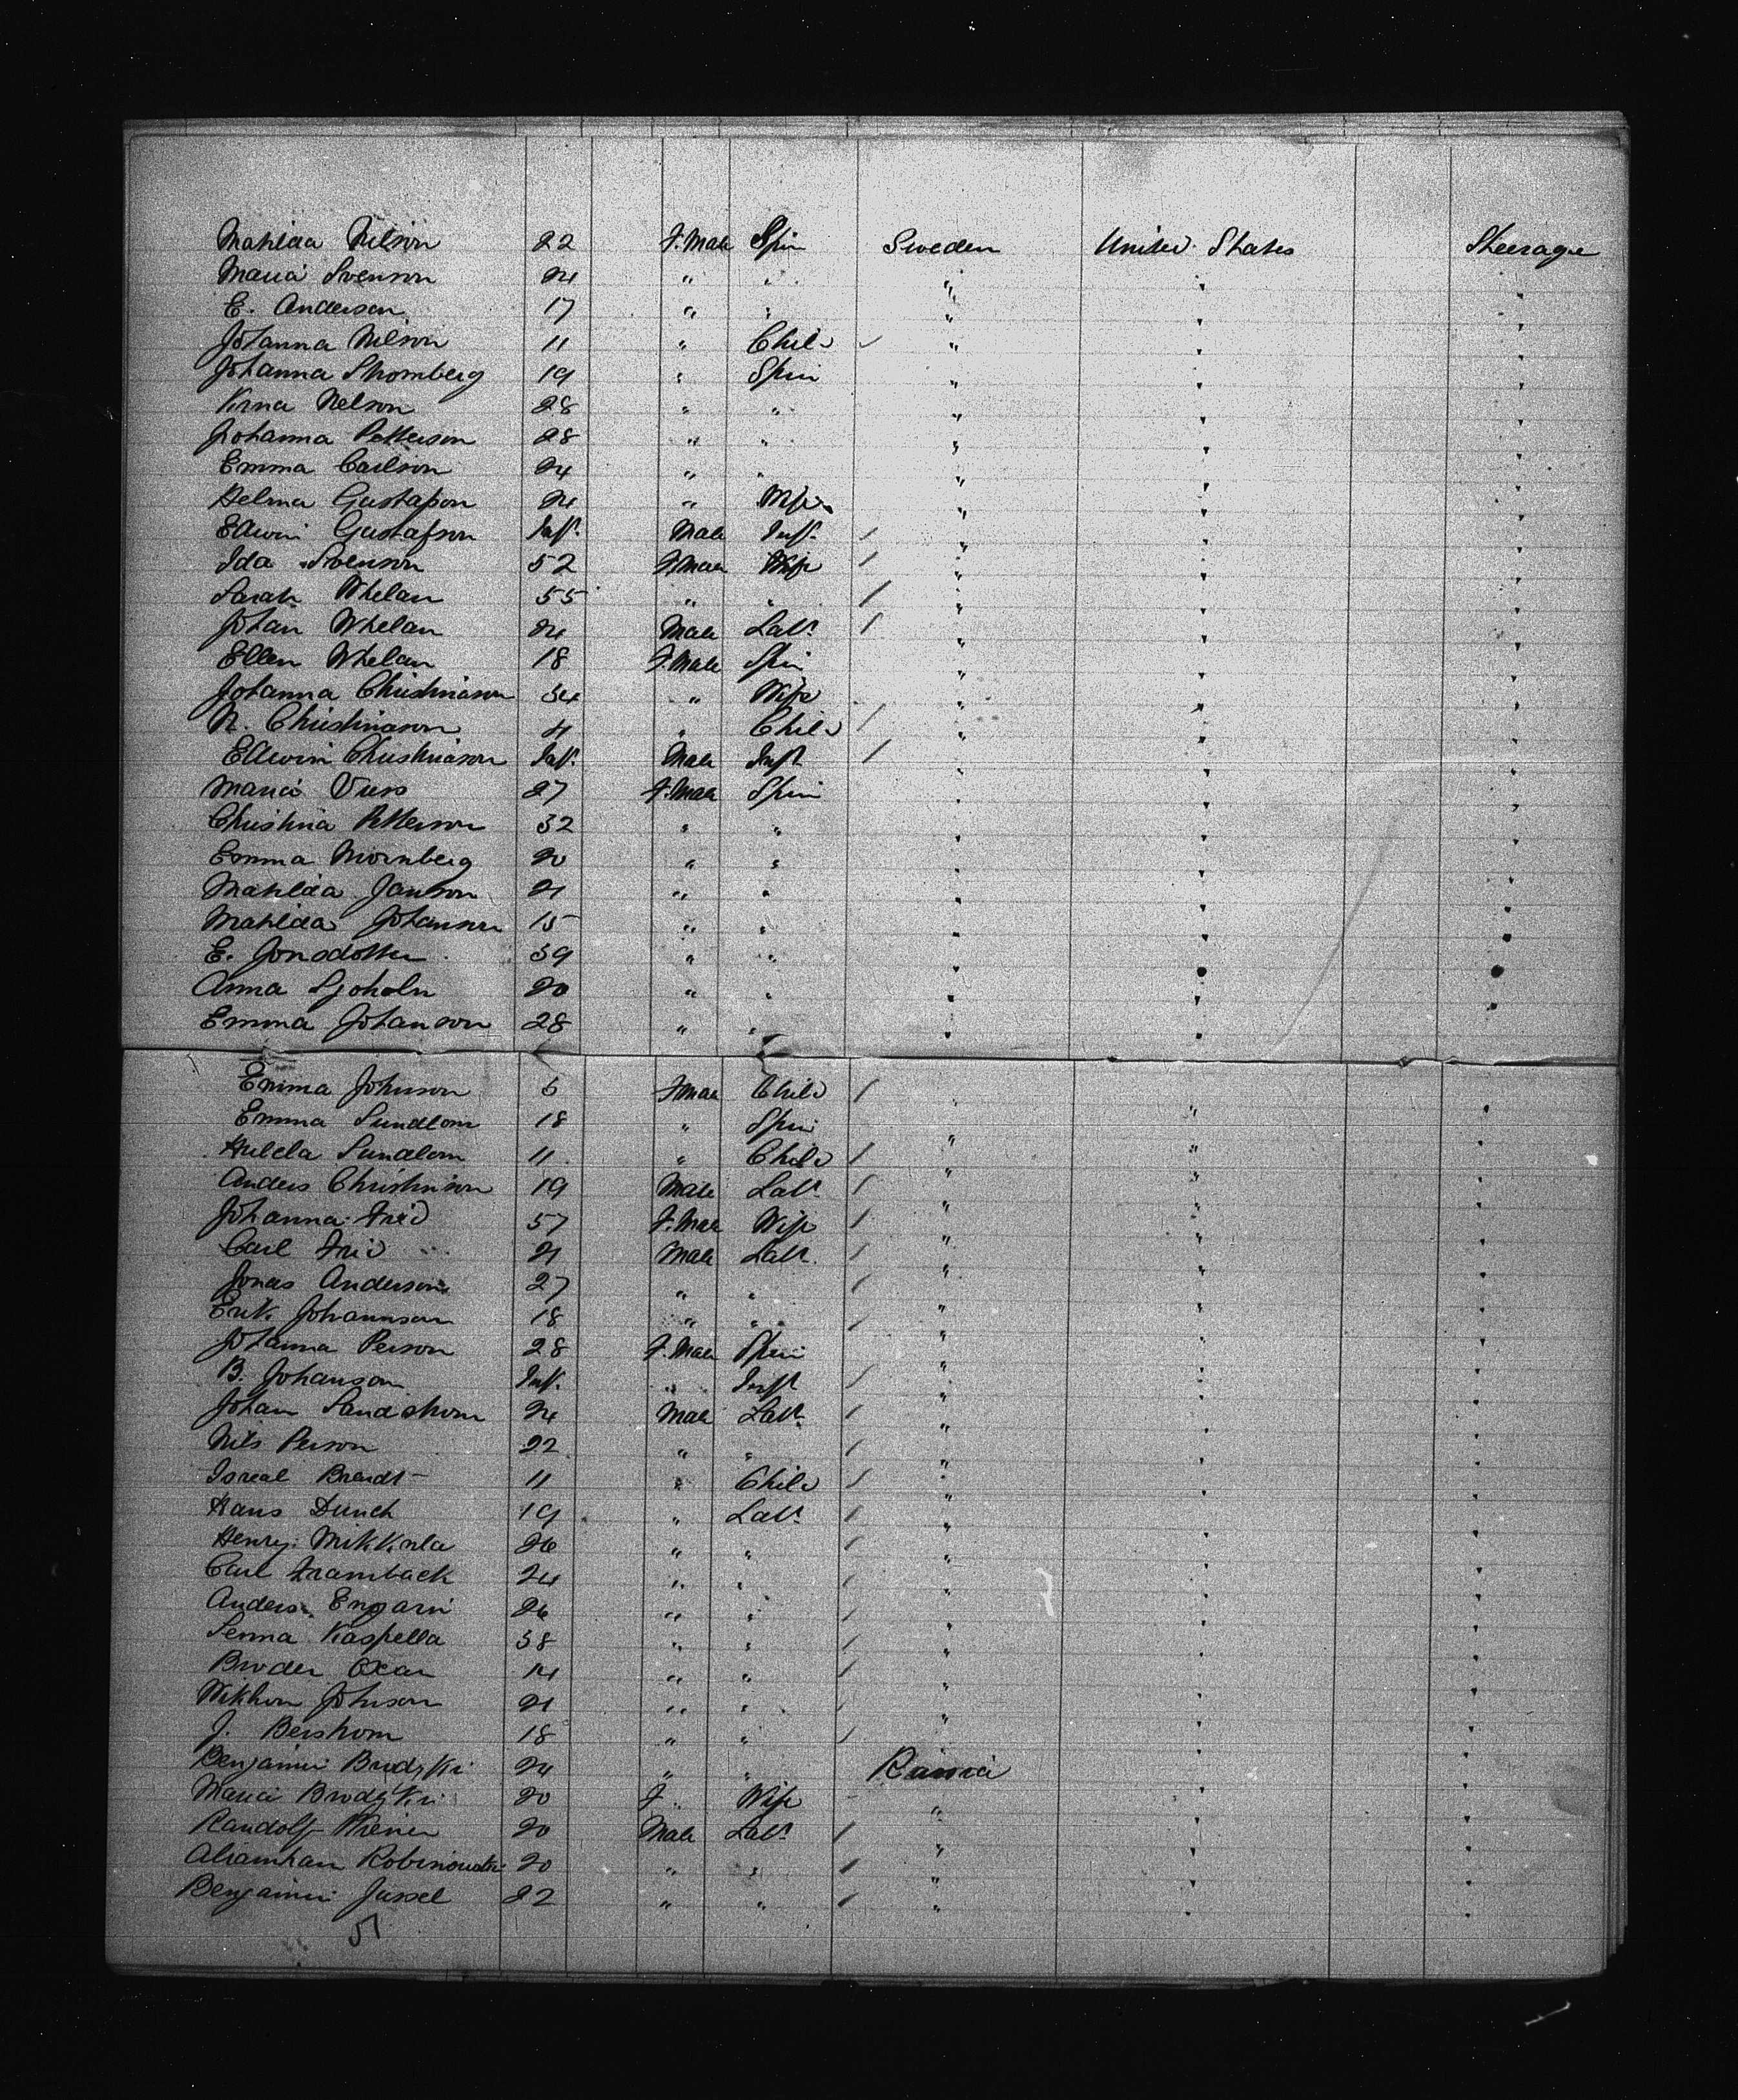 Mathlda Nelson 22 F.Male Spin Sweden United States Steerage
Maria Svenson 24 " " " " "
E. Anderson 17 " " " " "
Johanna Nelson 11 " Child " " "
Johanna Stromberg 19 " Spin " " "
Kirna Nelson 28 " " " " "
Johanna Petterson 28 " " " " "
Emma Carlson 24 " " " " "
Helma Gustafson 24 " Wife " " "
Edwin Gustafson Inft. Male Inft. " " "
Ida Svenson 52 F.Male Wife " " "
Sarah Whelan 55 " " " " "
Johan Whelan 24 Male Labr. " " "
Ellen Whelan 18 F.Male Spin " " "
Johanna Christinason 34 " Wife " " "
N. Christinason 4 " Child " " "
Edwin Christinason Inft. Male Inft " " "
Maria Vuss 27 F.Male Spin " " "
Christina Petterson 32 " " " " "
Emma Mornberg 20 " " " " "
Mathlda Janson 21 " " " " "
Mathlda Johanson 15 " " " " "
E. Jonsdotter 39 " " " " "
Anna Sjoholn 20 " " " " "
Emma Johanson 28 " " " " "
Emma Johnson 6 F.Male Child " " "
Emma Sundlom 18 " Spin " " "
Hulda Sundlom 11 " Child " " "
Anders Christinson 19 Male Labr. " " "
Johanna Frid 57 F.Male Wife " " "
Carl Frid 21 Male Labr. " " "
Jonas Anderson 27 " " " " "
Erik Johannson 18 " " " " "
Johanna Person 28 F.Male Spin " " "
B. Johanson Inft. " Inft " " "
Johan Sandstrom 24 Male Labr. " " "
Nils Person 22 " " " " "
Isreal Brandt 11 " Child " " "
Hans Dunch 19 " Labr. " " "
Henry Mikkirla 26 " " " " "
Carl Framback 24 " " " " "
Anders Engarn 26 " " " " "
Senna Kaspella 38 " " " " "
Broder Oxan 14 " " " " "
Wikhon Johnson 21 " " " " "
J. Berstrom 18 " " " " "
Benjamin Brodzki 24 " " Russia " "
Maria Brodzki 20 F " Wife " " "
Randolf Wiener 20 Male Labr. " " "
Abramhan Robinowitz 20 " " " " "
Benjamin Jassel 22 " " " " "
51